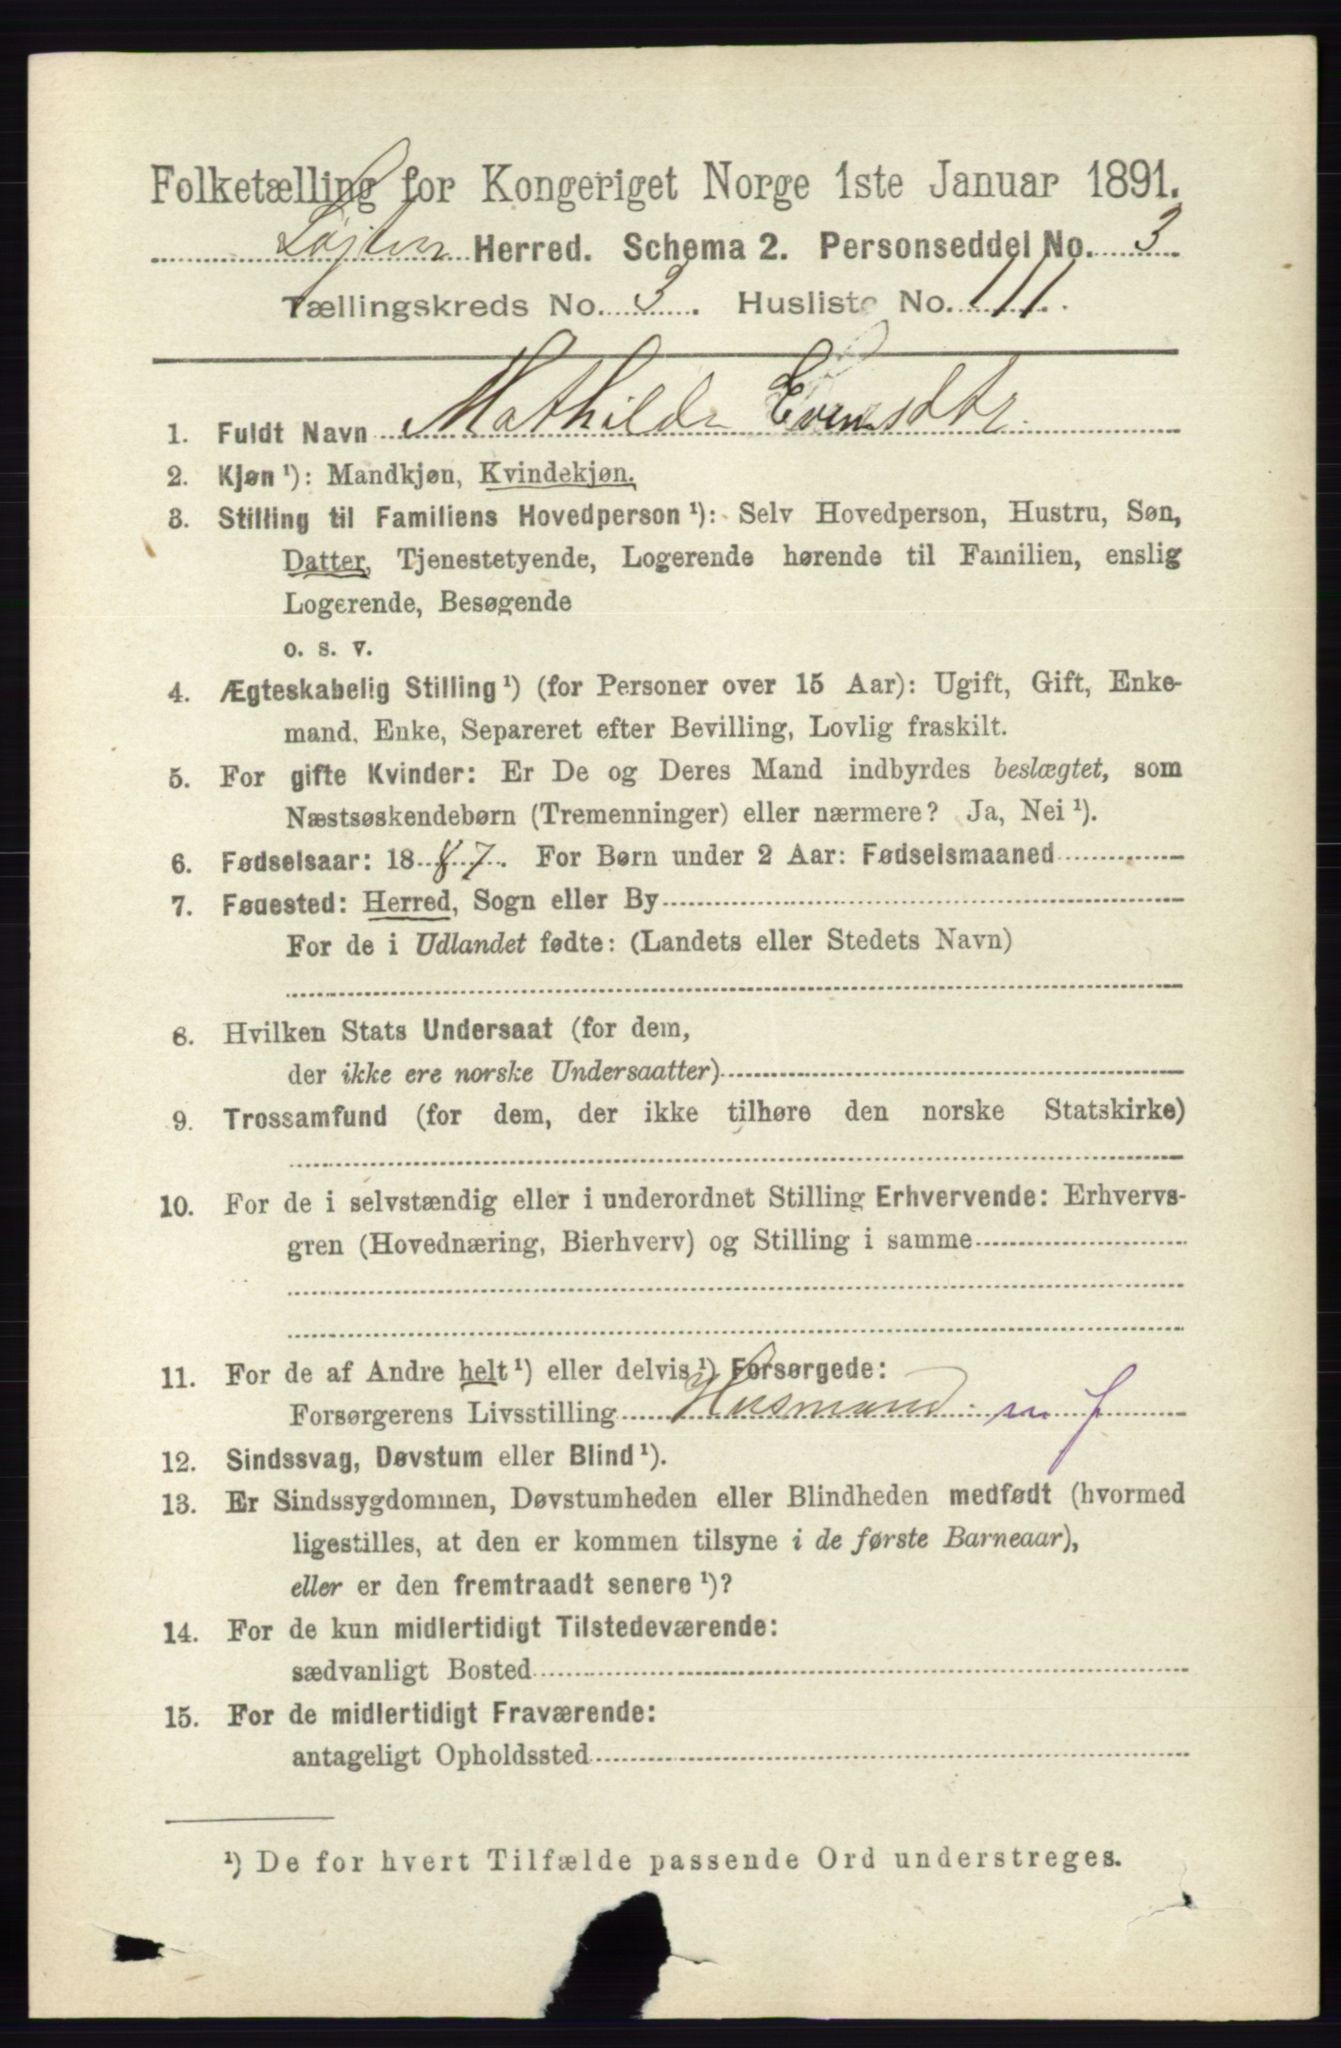 Folketælling for Kongeriget Norge 1ste Januar 1891.
Løjten Herred. Schema 2. Personseddel No. 3
Tællingskreds No. 3. Husliste No. 111.
1. Fuldt Navn Mathilde Evensdtr.
2. Kjøn ¹): Mandkjøn, Kvindekjøn.
3. Stilling til Familiens Hovedperson ¹): Selv Hovedperson, Hustru, Søn,
Datter, Tjenestetyende, Logerende hørende til Familien, enslig
Logerende, Besøgende
o. s. v.
4. Ægteskabelig Stilling ¹) (for Personer over 15 Aar): Ugift, Gift, Enke-
mand, Enke, Separeret efter Bevilling, Lovlig fraskilt.
5. For gifte Kvinder: Er De og Deres Mand indbyrdes beslægtet, som
Næstsøskendebørn (Tremenninger) eller nærmere? Ja, Nei ¹).
6. Fødselsaar: 1887. For Børn under 2 Aar: Fødselsmaaned
7. Fødested: Herred, Sogn eller By
For de i Udlandet fødte: (Landets eller Stedets Navn)
8. Hvilken Stats Undersaat (for dem,
der ikke ere norske Undersaatter)
9. Trossamfund (for dem, der ikke tilhøre den norske Statskirke)
10. For de i selvstændig eller i underordnet Stilling Erhvervende: Erhvervs-
gren (Hovednæring, Bierhverv) og Stilling i samme
11. For de af Andre helt ¹) eller delvis ¹) Forsørgede:
Forsørgerens Livsstilling Husmand m f
12. Sindssvag, Døvstum eller Blind ¹).
13. Er Sindssygdommen, Døvstumheden eller Blindheden medfødt (hvormed
ligestilles, at den er kommen tilsyne i de første Barneaar),
eller er den fremtraadt senere ¹)?
14. For de kun midlertidigt Tilstedeværende:
sædvanligt Bosted
15. For de midlertidigt Fraværende:
antageligt Opholdssted
¹) De for hvert Tilfælde passende Ord understreges.